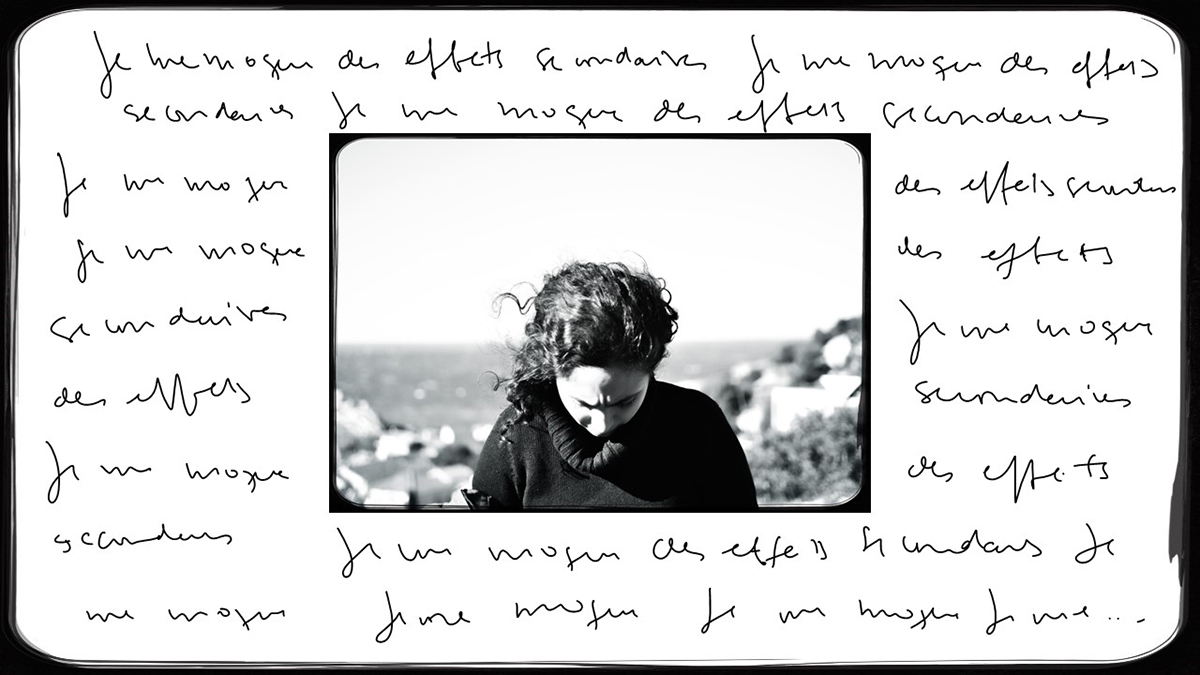 Je me moque des effets secondaires Je me moque des effets
secondaires Je me moque des effets secondaires
Je me moque des effets secondaires
Je me moque des effets
secondaires Je me moque
des effets secondaires
Je me moque des effets
secondaires Je me moque des effets secondaires Je
me moque Je me moque Je me moque Je me...